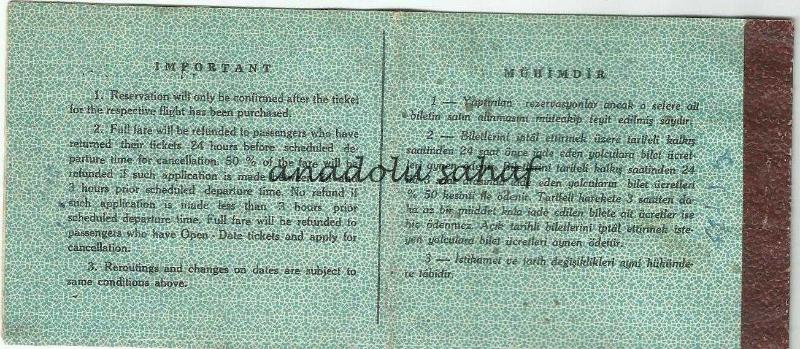 IMPORTANT
1. Reservation will only be confirmed after the ticket
for the respective flight has been purchased.
2. Full fare will be refunded to passengers who have
returned their tickets 24 hours before scheduled de-
parture time for cancellation. 50 % of the fare will be
refunded if such application is made
3 hours prior scheduled departure time. No refund if
such application is made less than 3 hours prior
scheduled departure time. Full fare will be refunded to
passengers who have Open - Date tickets and apply for
cancellation.
3. Reroutings and changes on dates are subject to
same conditions above.
MÜHİMDİR
1 — Yapılan rezervasyonlar ancak o sefere ait
biletin satın alınmasını müteakip teyit edilmiş sayılır.
2 — Biletlerini iptâl ettirmek üzere tarifeli kalkış
saatinden 24 saat önce iade eden yolculara bilet ücret-
leri aynen tarifeli kalkış saatinden 24
eden yolcuların bilet ücretleri
% 50 kesinti ile ödenir. Tarifeli harekete 3 saatten da-
ha az bir müddet kala iade edilen bilete ait ücretler ise
hiç ödenmez. Açık tarihli biletlerini iptâl ettirmek iste-
yen yolculara bilet ücretleri aynen ödenir.
3 — İstikamet ve tarih değişiklikleri ayni hükümle-
re tâbidir.
anadolu sahaf